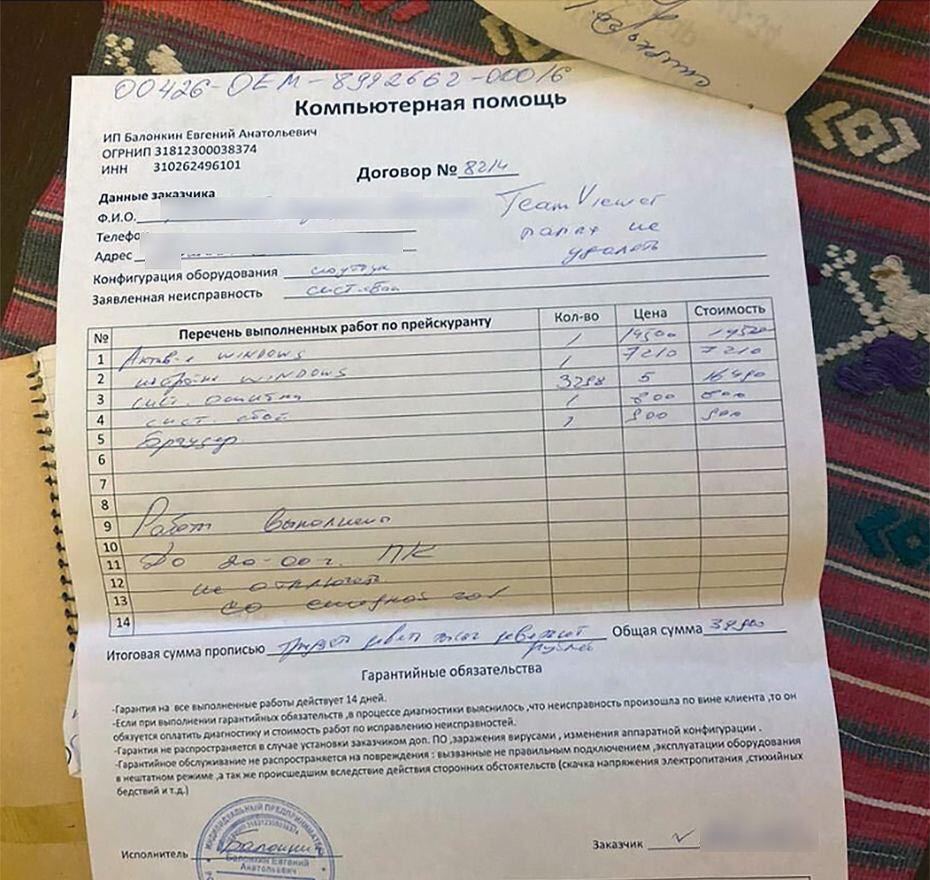 00426-OEM-8992662-00016
Компьютерная помощь
ИП Балонкин Евгений Анатольевич
ОГРНИП 31812300038374
ИНН 310262496101
Договор № 8214
Данные заказчика
Ф.И.О.
TeamViewer
папах не
удалять
Телефо
Адрес
Конфигурация оборудования ноутбук
Заявленная неисправность сист. сбой
№ Перечень выполненных работ по прейскуранту Кол-во Цена Стоимость
1 Актив-я WINDOWS 1 14500 14500
2 WINDOWS 1 7210 7210
3 сист. ошибки 3298 5 16490
4 сист. сбой 1 800 800
5 браузер 1 900 900
6
7
8
9 Работ выполнено
10
11 До 20-00 г. ПК
12 не отключать
13 со
14
Итоговая сумма прописью тысяч рублей Общая сумма
Гарантийные обязательства
-Гарантия на все выполненные работы действует 14 дней.
-Если при выполнении гарантийных обязательств ,в процессе диагностики выяснилось ,что неисправность произошла по вине клиента ,то он
обязуется оплатить диагностику и стоимость работ по исправлению неисправностей.
-Гарантия не распространяется в случае установки заказчиком доп. ПО ,заражения вирусами , изменения аппаратной конфигурации .
-Гарантийное обслуживание не распространяется на повреждения : вызванные не правильным подключением ,эксплуатации оборудования
в нештатном режиме ,а так же происшедшим вследствие действия сторонних обстоятельств (скачка напряжения электропитания ,стихийных
бедствий и т.д.)
ИНДИВИДУАЛЬНЫЙ ПРЕДПРИНИМАТЕЛЬ
Исполнитель Балонкин
Балонкин Евгений
Анатольевич
Заказчик